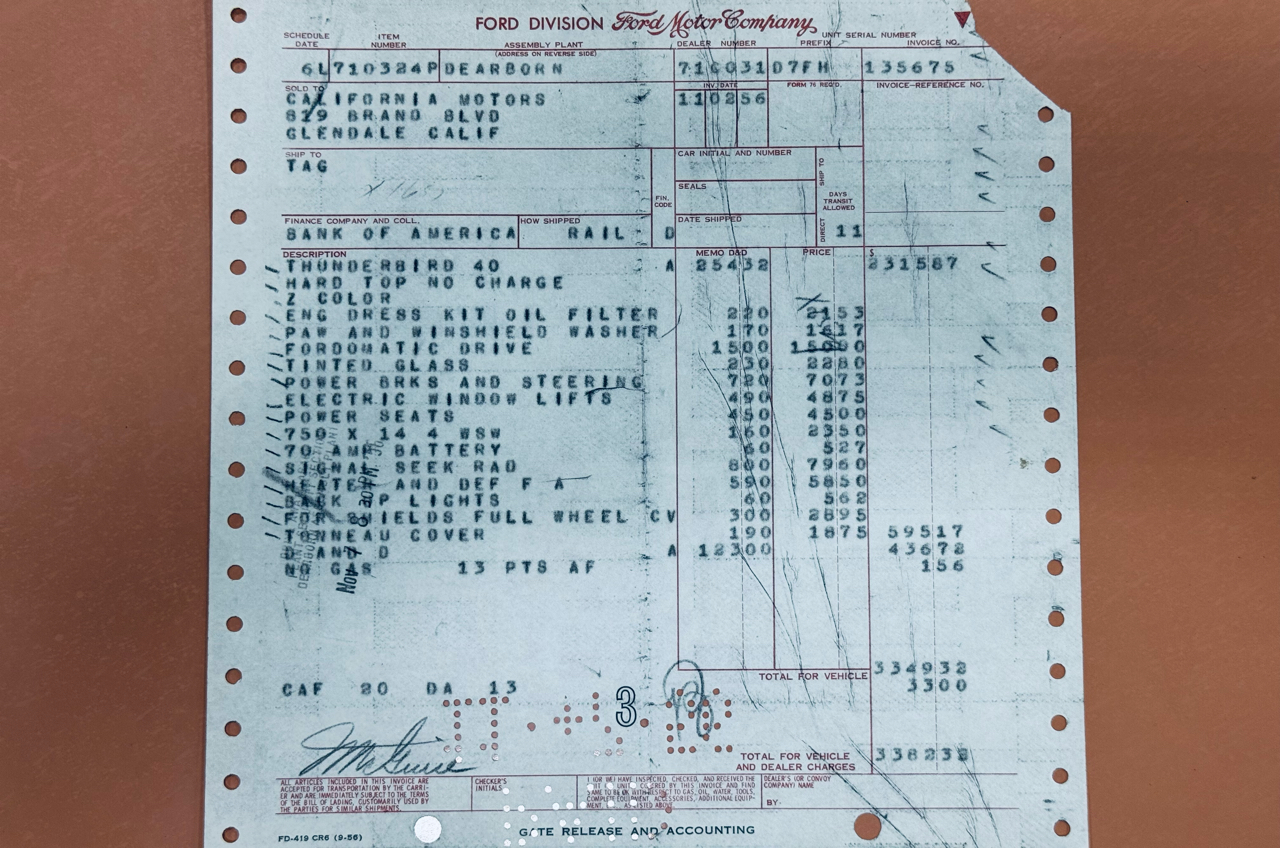 FORD DIVISION Ford Motor Company
SCHEDULE DATE ITEM NUMBER ASSEMBLY PLANT (ADDRESS ON REVERSE SIDE) DEALER NUMBER PREFIX UNIT SERIAL NUMBER INVOICE NO.
6L 710324P DEARBORN 71G031 D7FH 135675
SOLD TO INV. DATE FORM 76 REQ'D. INVOICE-REFERENCE NO.
CALIFORNIA MOTORS 110256
819 BRAND BLVD
GLENDALE CALIF
SHIP TO CAR INITIAL AND NUMBER SHIP TO
TAG
SEALS
FIN. CODE DAYS TRANSIT ALLOWED
FINANCE COMPANY AND COLL. HOW SHIPPED DATE SHIPPED DIRECT
BANK OF AMERICA RAIL D 11
DESCRIPTION MEMO D&D PRICE $
THUNDERBIRD 40 A 25432 231587
HARD TOP NO CHARGE
Z COLOR
ENG DRESS KIT OIL FILTER 220 2153
PAW AND WINSHIELD WASHER 170 1617
FORDOMATIC DRIVE 1500 15090
TINTED GLASS 230 2280
POWER BRKS AND STEERING 720 7073
ELECTRIC WINDOW LIFTS 490 4875
POWER SEATS 450 4500
750 X 14 4 WSW 160 2350
70 AMP BATTERY 60 527
SIGNAL SEEK RAD 800 7960
HEATE AND DEF F A 590 5850
BACK P LIGHTS 60 562
FOR SHIELDS FULL WHEEL CV 300 2895
TONNEAU COVER 190 1875 59517
D AND D A 12300 43672
NO GAS 13 PTS AF 156
NOV 7
334932
TOTAL FOR VEHICLE
CAF 20 DA 13 3300
3
TOTAL FOR VEHICLE AND DEALER CHARGES 338232
ALL ARTICLES INCLUDED IN THIS INVOICE ARE
ACCEPTED FOR TRANSPORTATION BY THE CARRI-
ER AND ARE IMMEDIATELY SUBJECT TO THE TERMS
OF THE BILL OF LADING, CUSTOMARILY USED BY
THE PARTIES FOR SIMILAR SHIPMENTS.
CHECKER'S INITIALS
I (OR WE) HAVE INSPECTED, CHECKED, AND RECEIVED THE
UNIT COVERED BY THIS INVOICE AND FIND
SAME TO BE OK WITH RESPECT TO GAS, OIL, WATER, TOOLS,
COMPLETE EQUIPMENT, ACCESSORIES, ADDITIONAL EQUIP-
MENT, AS LISTED ABOVE.
DEALER'S (OR CONVOY COMPANY) NAME
BY-
FD-419 CR6 (9-56) GATE RELEASE AND ACCOUNTING